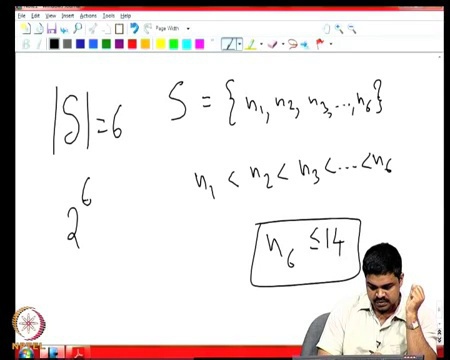 File Edit View Insert Actions Tools Help
Page Width
|S| = 6
S = {n₁, n₂, n₃, ..., n₆}
n₁ < n₂ < n₃ < ... < n₆
2⁶
n₆ ≤ 14